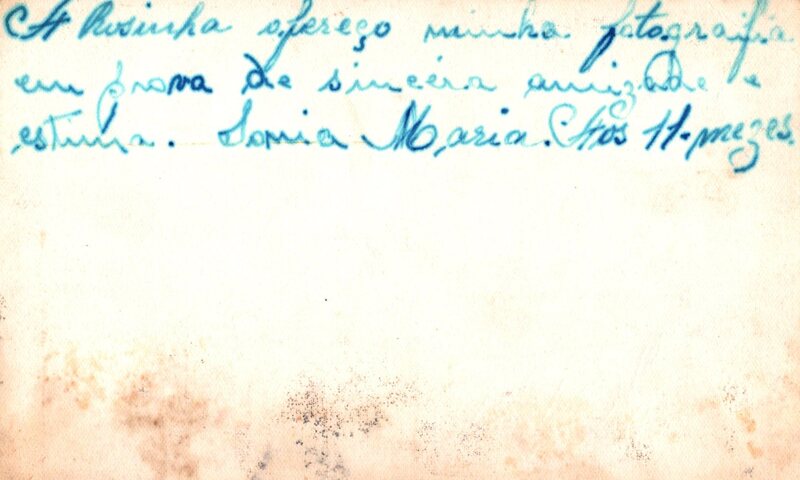 A Rosinha ofereço minha fotografia
em prova de sincéra amizade e
estima. Sonia Maria. Aos 11-mezes.